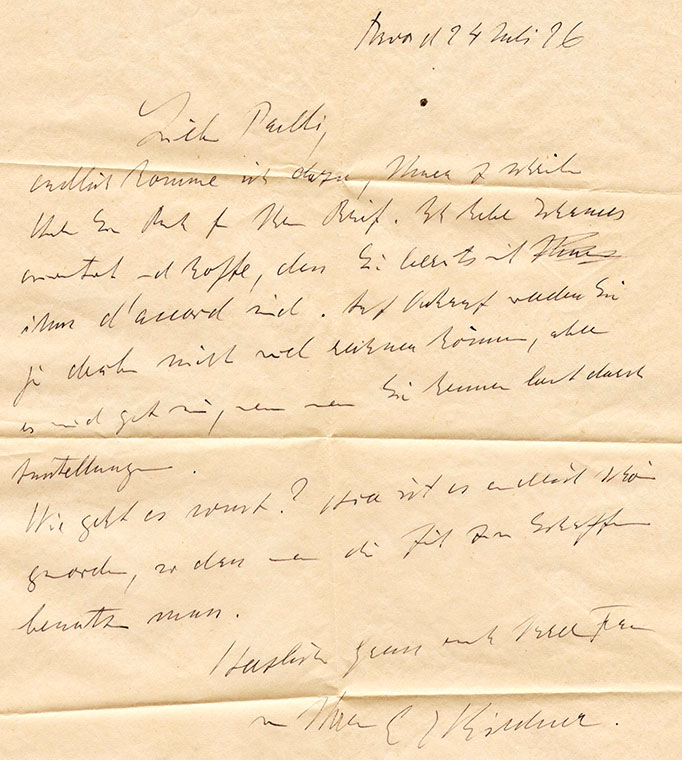 Davos d 24 Juli 26
Lieber Paulli,
endlich komme ich dazu, Ihnen z schreiben
Ihnen Dank f Ihren Brief. Ich habe
und hoffe, dass Sie bereits mit Ihnen
ihm d'accord sind. Auf Verkauf werden Sie
ja dabei nicht viel rechnen können, aber
es wird gut sein, wenn man Sie kennen lernt durch
Ausstellungen.
Wie geht es sonst? Hier ist es endlich schön
geworden, so dass man die Zeit zum Schaffen
benutzen muss.
Herzliche Grüsse auch Ihrer Frau
von Ihrem E L Kirchner.